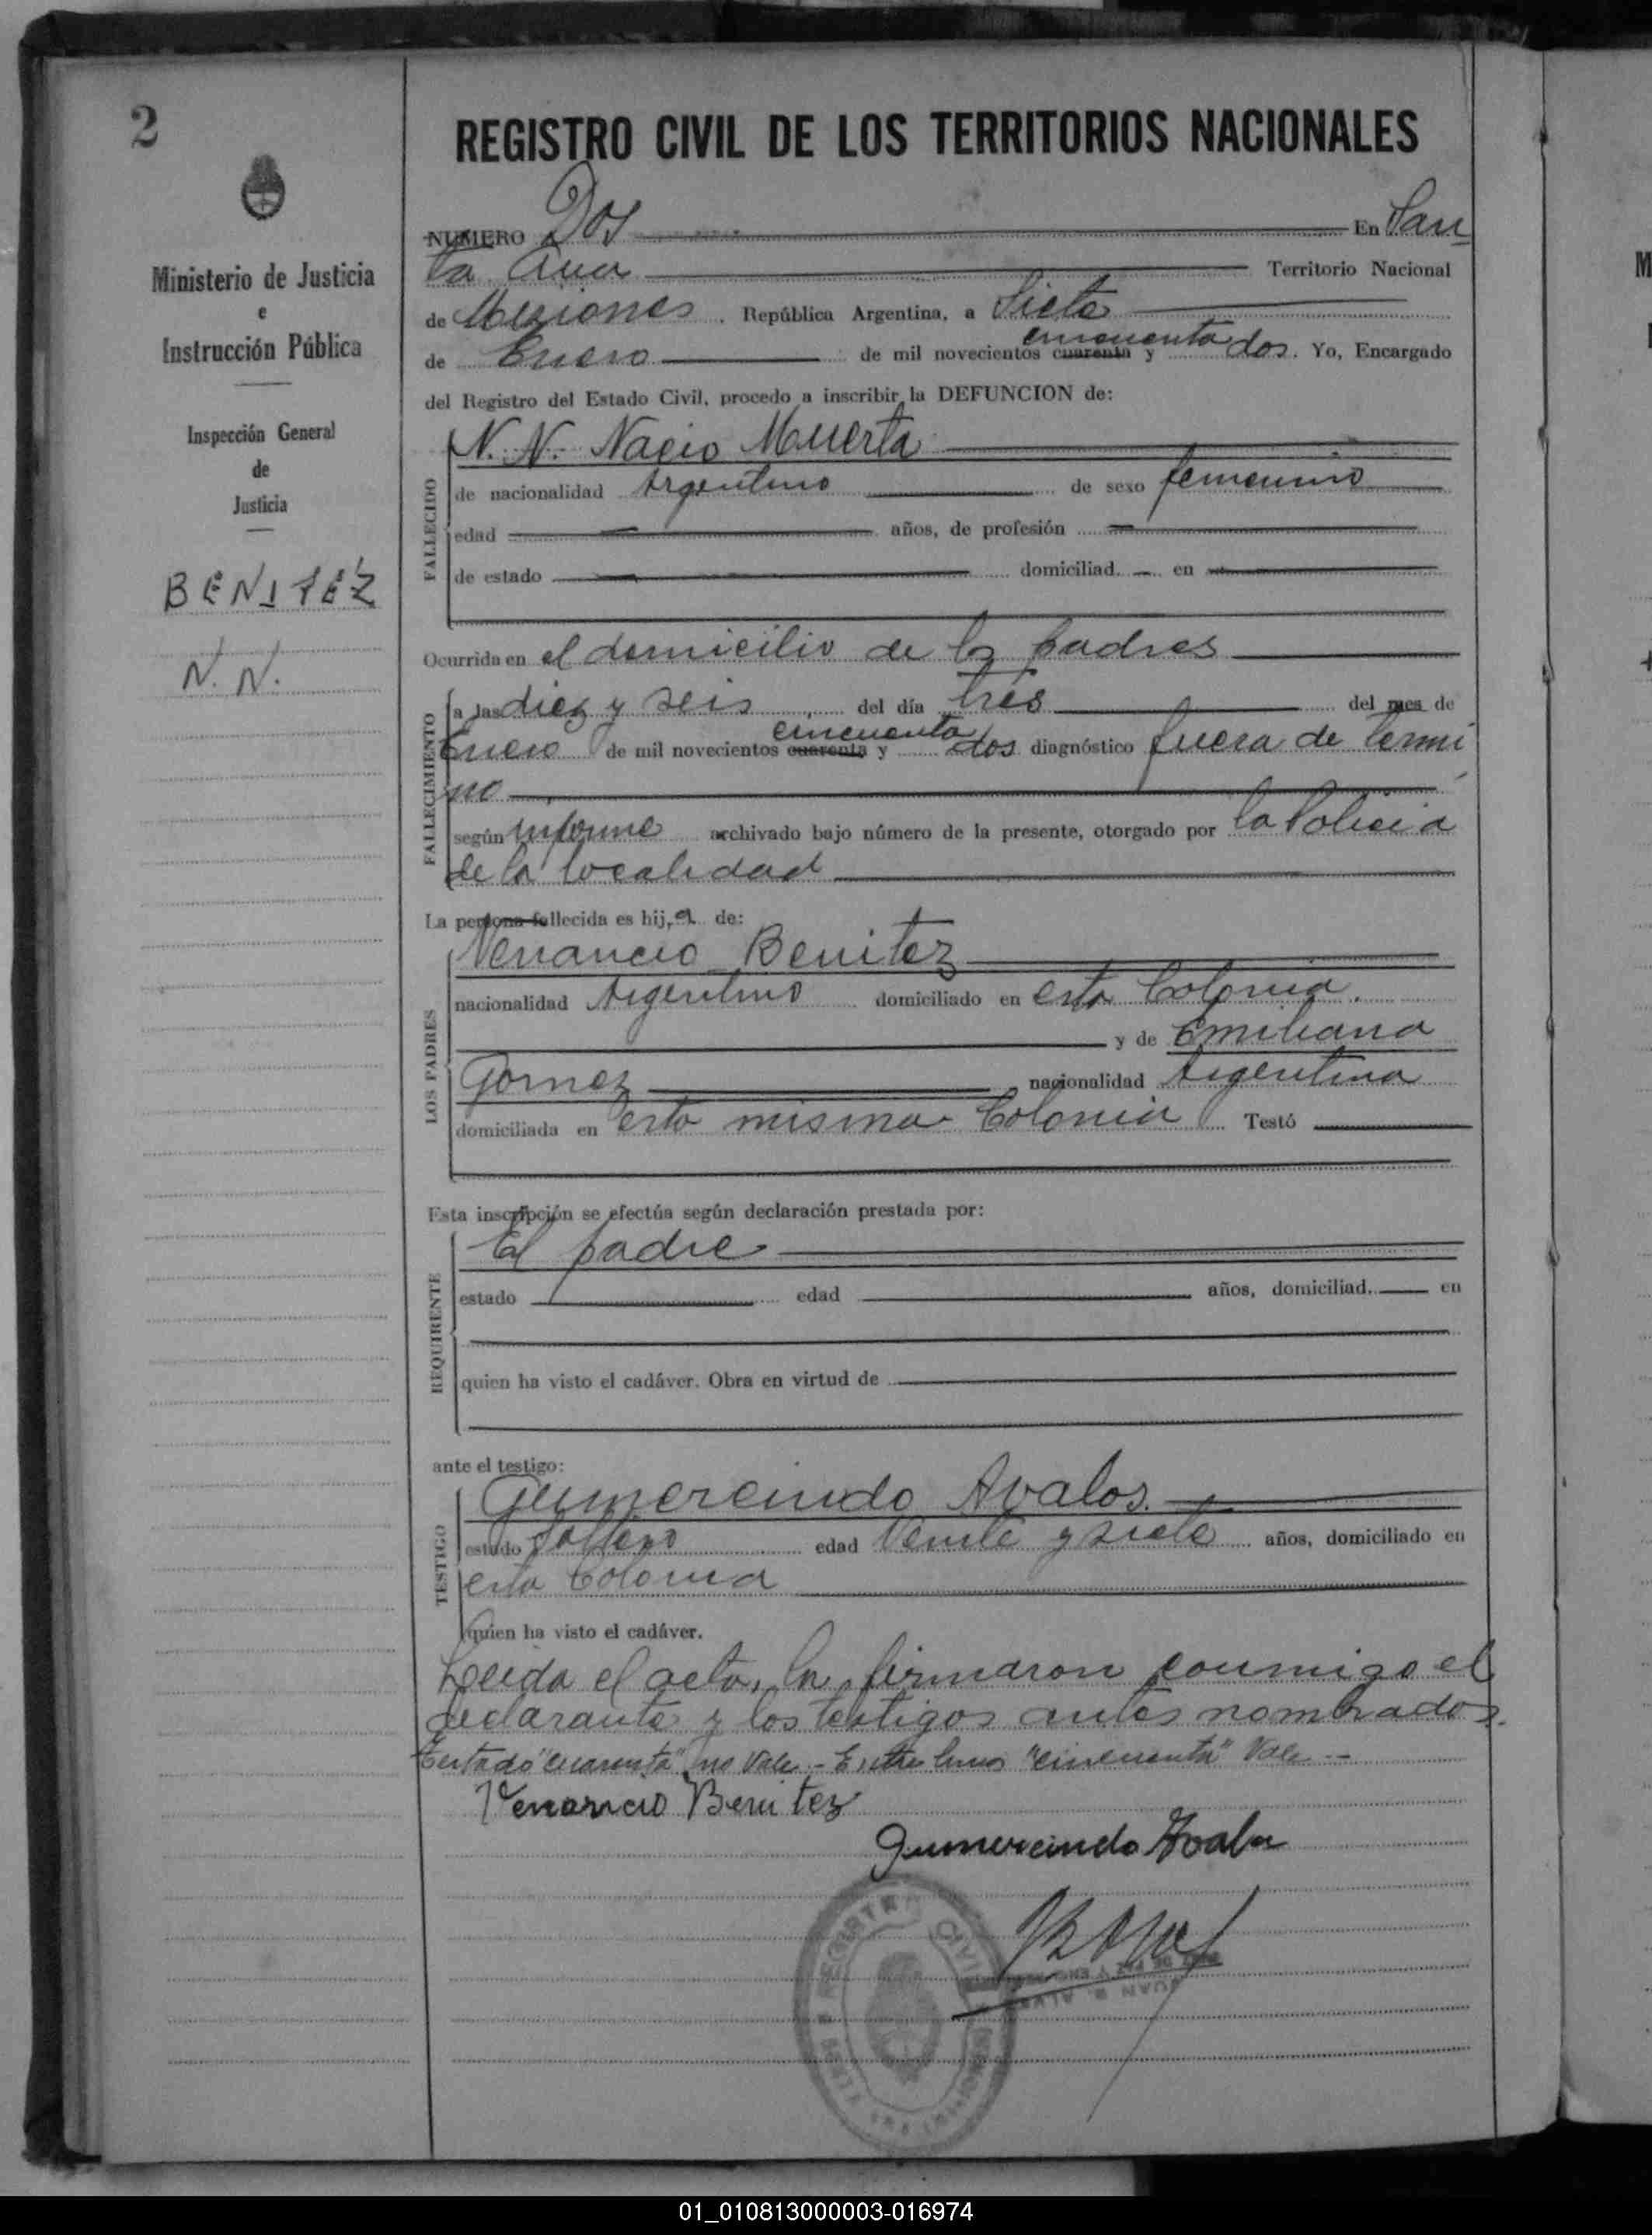 2
Ministerio de Justicia
e
Instrucción Pública
Inspección General
de
Justicia
BENITEZ
N. N.
REGISTRO CIVIL DE LOS TERRITORIOS NACIONALES
NUMERO Dos En San
ta Ana Territorio Nacional
de Misiones, República Argentina, a Siete
cincuenta
de Enero de mil novecientos cuarenta y dos. Yo, Encargado
del Registro del Estado Civil, procedo a inscribir la DEFUNCION de:
FALLECIDO
N. N. Nacio Muerta
de nacionalidad Argentino de sexo femenino
edad años, de profesión
de estado domiciliad en
Ocurrida en el domicilio de los padres
FALLECIMIENTO
a las diez y seis del día tres del mes de
cincuenta
Enero de mil novecientos cuarenta y dos diagnóstico fuera de termi
no
según informe archivado bajo número de la presente, otorgado por la Policia
de la localidad
La persona fallecida es hij,a de:
LOS PADRES
Venancio Benitez
nacionalidad Argentino domiciliado en esta Colonia.
y de Emiliana
Gomez, nacionalidad Argentina
domiciliada en esta misma Colonia Testó
Esta inscripción se efectúa según declaración prestada por:
REQUIRENTE
El padre
estado edad años, domiciliad en
quien ha visto el cadáver. Obra en virtud de
ante el testigo:
TESTIGO
Gumercindo Avalos.
estado Soltero edad Veinte y siete años, domiciliado en
esta Colonia
quien ha visto el cadáver.
Leida el acta, la firmaron conmigo el
declarante y los testigos antes nombrados.
Testado "cuarenta" no Vale - Entre lineas "cincuenta" Vale --
Venancio Benitez
Gumercindo Avalo
REGISTRO CIVIL
JUAN B. ALVES
01_010813000003-016974